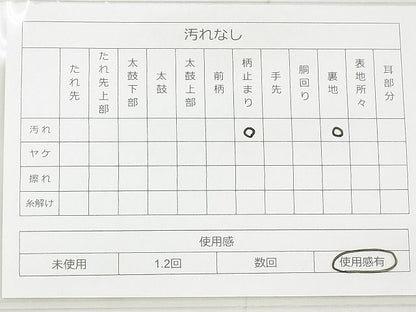 汚れなし
たれ先 たれ先上部 太鼓下部 太鼓 太鼓上部 前柄 柄止まり 手先 胴回り 裏地 表地所々 耳部分
汚れ ○ ○
ヤケ
擦れ
糸解け
使用感
未使用 1.2回 数回 使用感有